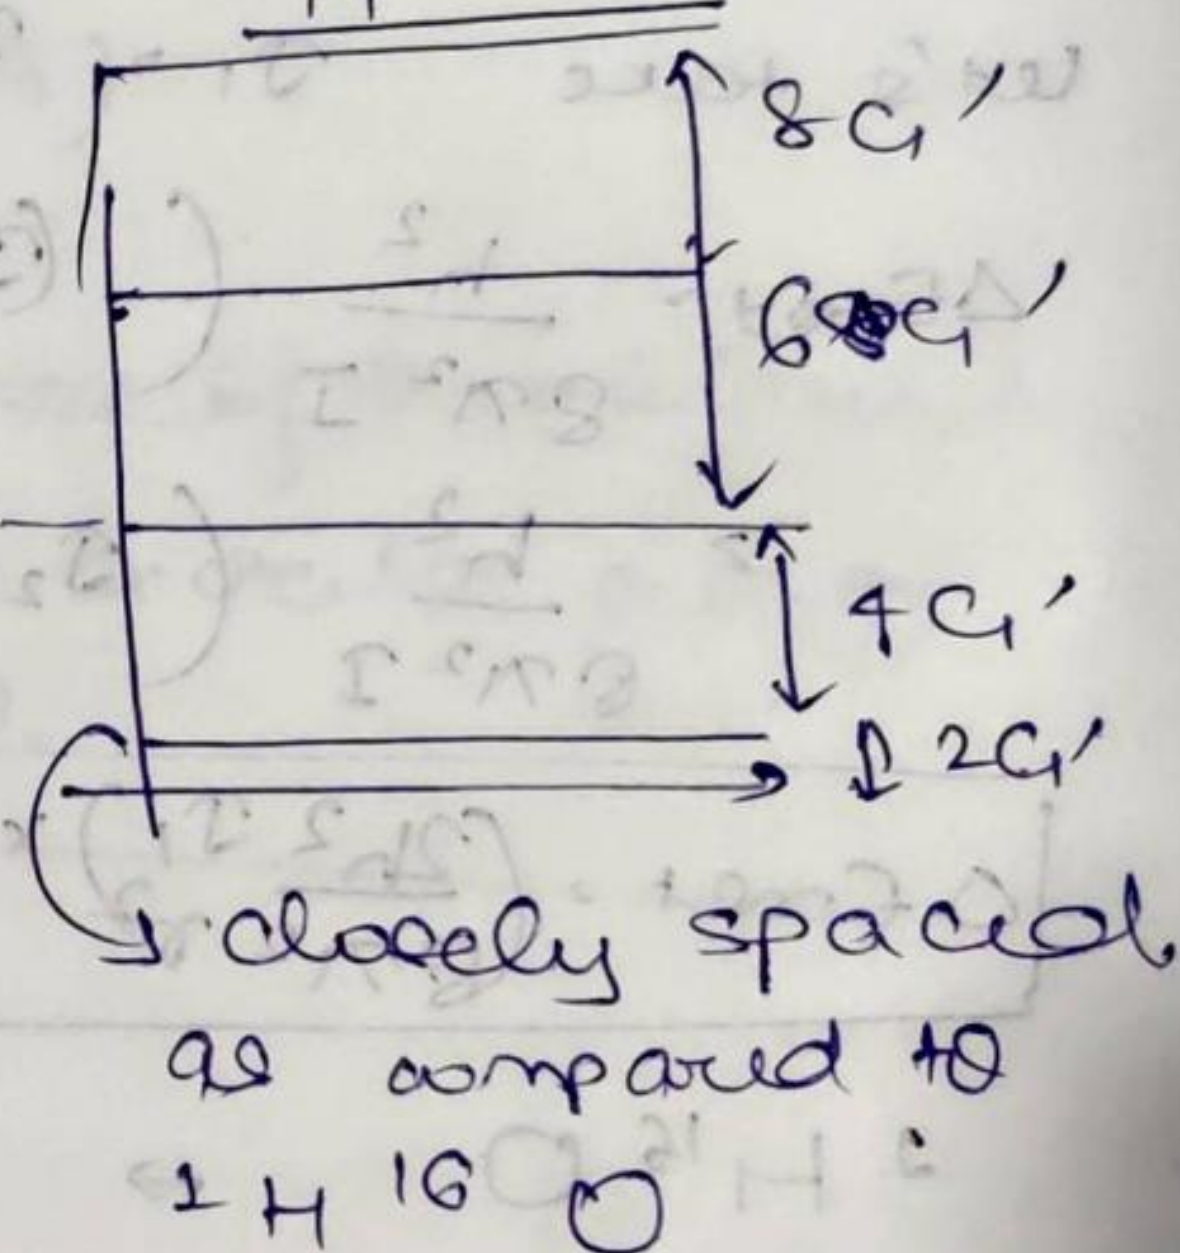 8G'
6G'
4G'
2G'
closely spaced
as compared to
1H 16O